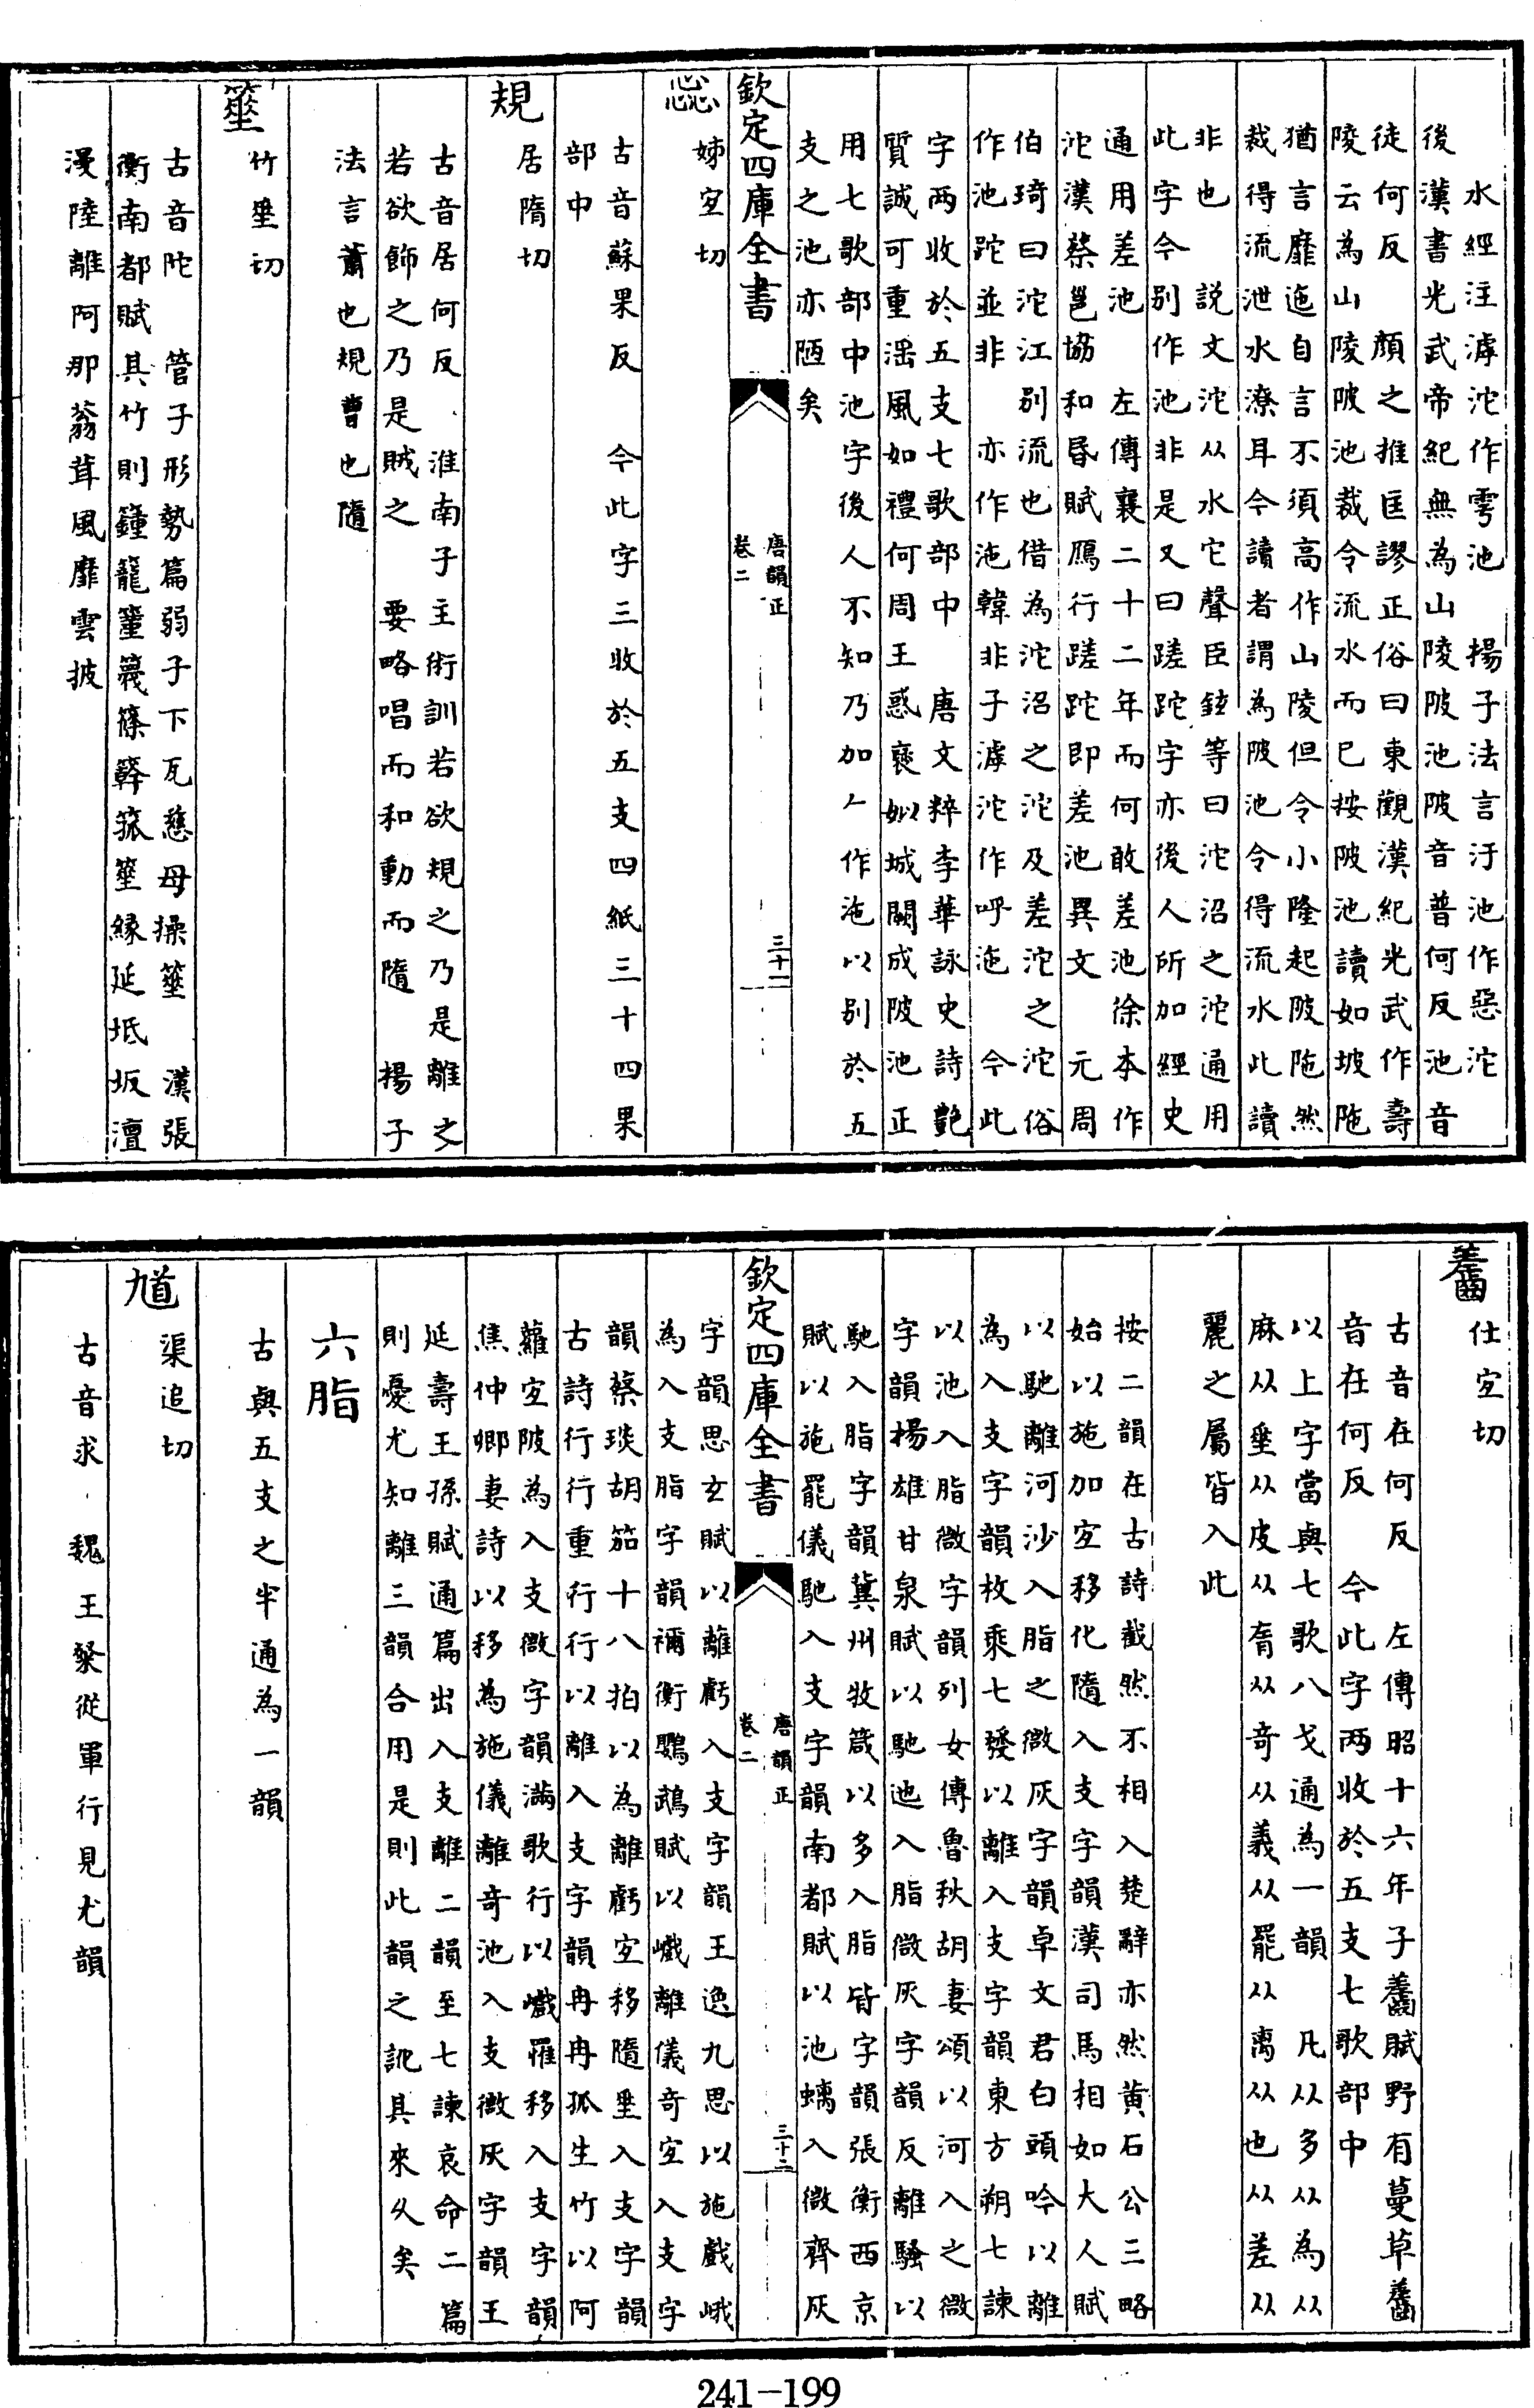 水經注滹沱作雩池　揚子法言汙池作惡沱
後漢書光武帝紀無為山陵陂池陂音普何反池音
徒何反　顏之推匡謬正俗曰東觀漢紀光武作壽
陵云為山陵陂池裁令流水而已按陂池讀如坡陁
猶言靡迤自言不須高作山陵但令小隆起陂陁然
裁得流泄水潦耳今讀者謂為陂池令得流水此讀
非也　說文沱从水它聲臣鉉等曰沱沼之沱通用
此字今别作池非是又曰蹉跎字亦後人所加經史
通用差池　左傳襄二十二年而何敢差池徐本作
沱漢蔡邕協和昏賦鴈行蹉跎即差池異文　元周
伯琦曰沱江别流也借為沱沼之沱沱及差沱之沱俗
作池跎並非　亦作沲韓非子滹沱作呼沲　今此
字两收於五支七歌部中　唐文粹李華詠史詩艶
質誠可重淫風如禮何周王惑襃姒城闕成陂池正
用七歌部中池字後人不知乃加𠂉作沲以别於五
支之池亦陋矣
欽定四庫全書
唐韻正
卷二
三十一
惢
姊宜切
古音蘇果反　今此字三收於五支四紙三十四果
部中
規
居隋切
古音居何反　淮南子主術訓若欲規之乃是離之
若欲飾之乃是賊之　要略唱而和動而隨　揚子
法言蕭也規曹也隨
箠
竹垂切
古音陀　管子形勢篇弱子下瓦慈母操箠　漢張
衡南都賦其竹則鐘籠䈽篾篠簳箛箠緣延坻坂澶
漫陸離阿那蓊茸風靡雲披
齹
仕宜切
古音在何反　左傳昭十六年子齹賦野有蔓草齹
音在何反　今此字两收於五支七歌部中
以上字當與七歌八戈通為一韻　凡从多从為从
麻从垂从皮从𦚏从奇从義从罷从离从也从差从
麗之屬皆入此
按二韻在古詩截然不相入楚辭亦然黄石公三略
始以施加宜移化隨入支字韻漢司馬相如大人賦
以馳離河沙入脂之微灰字韻卓文君白頭吟以離
為入支字韻枚乘七發以離入支字韻東方朔七諫
以池入脂微字韻列女傳魯秋胡妻頌以河入之微
字韻楊雄甘泉賦以馳迆入脂微灰字韻反離騷以
馳入脂字韻冀州牧箴以多入脂皆字韻張衡西京
賦以施罷儀馳入支字韻南都賦以池螭入微齊灰
欽定四庫全書
唐韻正
卷二
三十二
字韻思玄賦以離虧入支字韻王逸九思以施戲峨
為入支脂字韻禰衡鸚鵡賦以巇離儀奇宜入支字
韻蔡琰胡笳十八拍以為離虧宜移隨垂入支字韻
古詩行行重行行以離入支字韻冉冉孤生竹以阿
蘿宜陂為入支微字韻滿歌行以巇罹移入支字韻
焦仲卿妻詩以移為施儀離奇池入支微灰字韻王
延壽王孫賦通篇出入支離二韻至七諫哀命二篇
則憂尤知離三韻合用是則此韻之訛其來久矣
六脂
古與五支之半通為一韻
馗
渠追切
古音求　魏王粲從軍行見尤韻
241—199